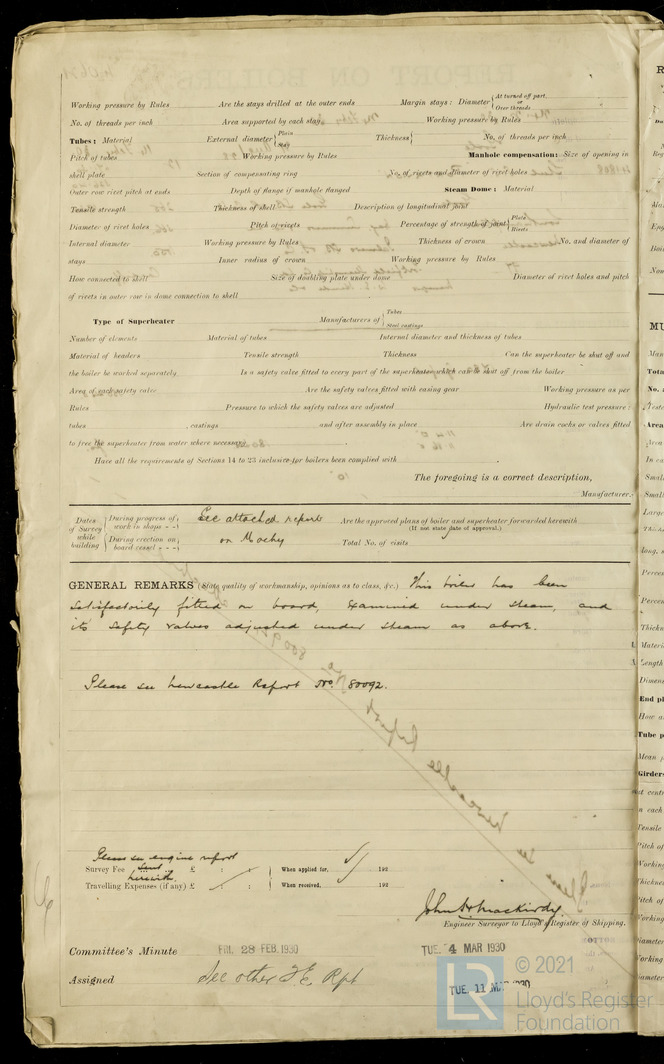 Working pressure by Rules Are the stays drilled at the outer ends Margin stays: Diameter { At turned off part, or Over threads
No. of threads per inch Area supported by each stay Working pressure by Rules
Tubes: Material External diameter { Plain Stay Thickness { No. of threads per inch
Pitch of tubes Working pressure by Rules Manhole compensation: Size of opening in
shell plate Section of compensating ring No. of rivets and diameter of rivet holes
Outer row rivet pitch at ends Depth of flange if manhole flanged Steam Dome: Material
Tensile strength Thickness of shell Description of longitudinal joint
Diameter of rivet holes Pitch of rivets Percentage of strength of joint { Plate Rivets
Internal diameter Working pressure by Rules Thickness of crown No. and diameter of
stays Inner radius of crown Working pressure by Rules
How connected to shell Size of doubling plate under dome Diameter of rivet holes and pitch
of rivets in outer row in dome connection to shell
Type of Superheater Manufacturers of { Tubes Steel castings
Number of elements Material of tubes Internal diameter and thickness of tubes
Material of headers Tensile strength Thickness Can the superheater be shut off and
the boiler be worked separately Is a safety valve fitted to every part of the superheater which can be shut off from the boiler
Area of each safety valve Are the safety valves fitted with easing gear Working pressure as per
Rules Pressure to which the safety valves are adjusted Hydraulic test pressure:
tubes , castings and after assembly in place Are drain cocks or valves fitted
to free the superheater from water where necessary
Have all the requirements of Sections 14 to 23 inclusive for boilers been complied with
The foregoing is a correct description,
Manufacturer.
Dates of Survey while building { During progress of work in shops - - See attached report Are the approved plans of boiler and superheater forwarded herewith
(If not state date of approval.)
{ During erection on board vessel - - - on Mochy Total No. of visits
GENERAL REMARKS (State quality of workmanship, opinions as to class, &c.) This boiler has been
satisfactorily fitted on board, examined under steam, and
its safety valves adjusted under steam as above.
Please see Newcastle Report No. 80092.
Please see engine report
Survey Fee £ : : When applied for, 192
herewith.
Travelling Expenses (if any) £ : : When received, 192
Engineer Surveyor to Lloyd's Register of Shipping.
Committee's Minute FRI. 28 FEB. 1930 TUE. 4 MAR 1930
Assigned See other F.E. Rpt TUE. 11 MAR 1930
LR © 2021
Lloyd's Register
Foundation